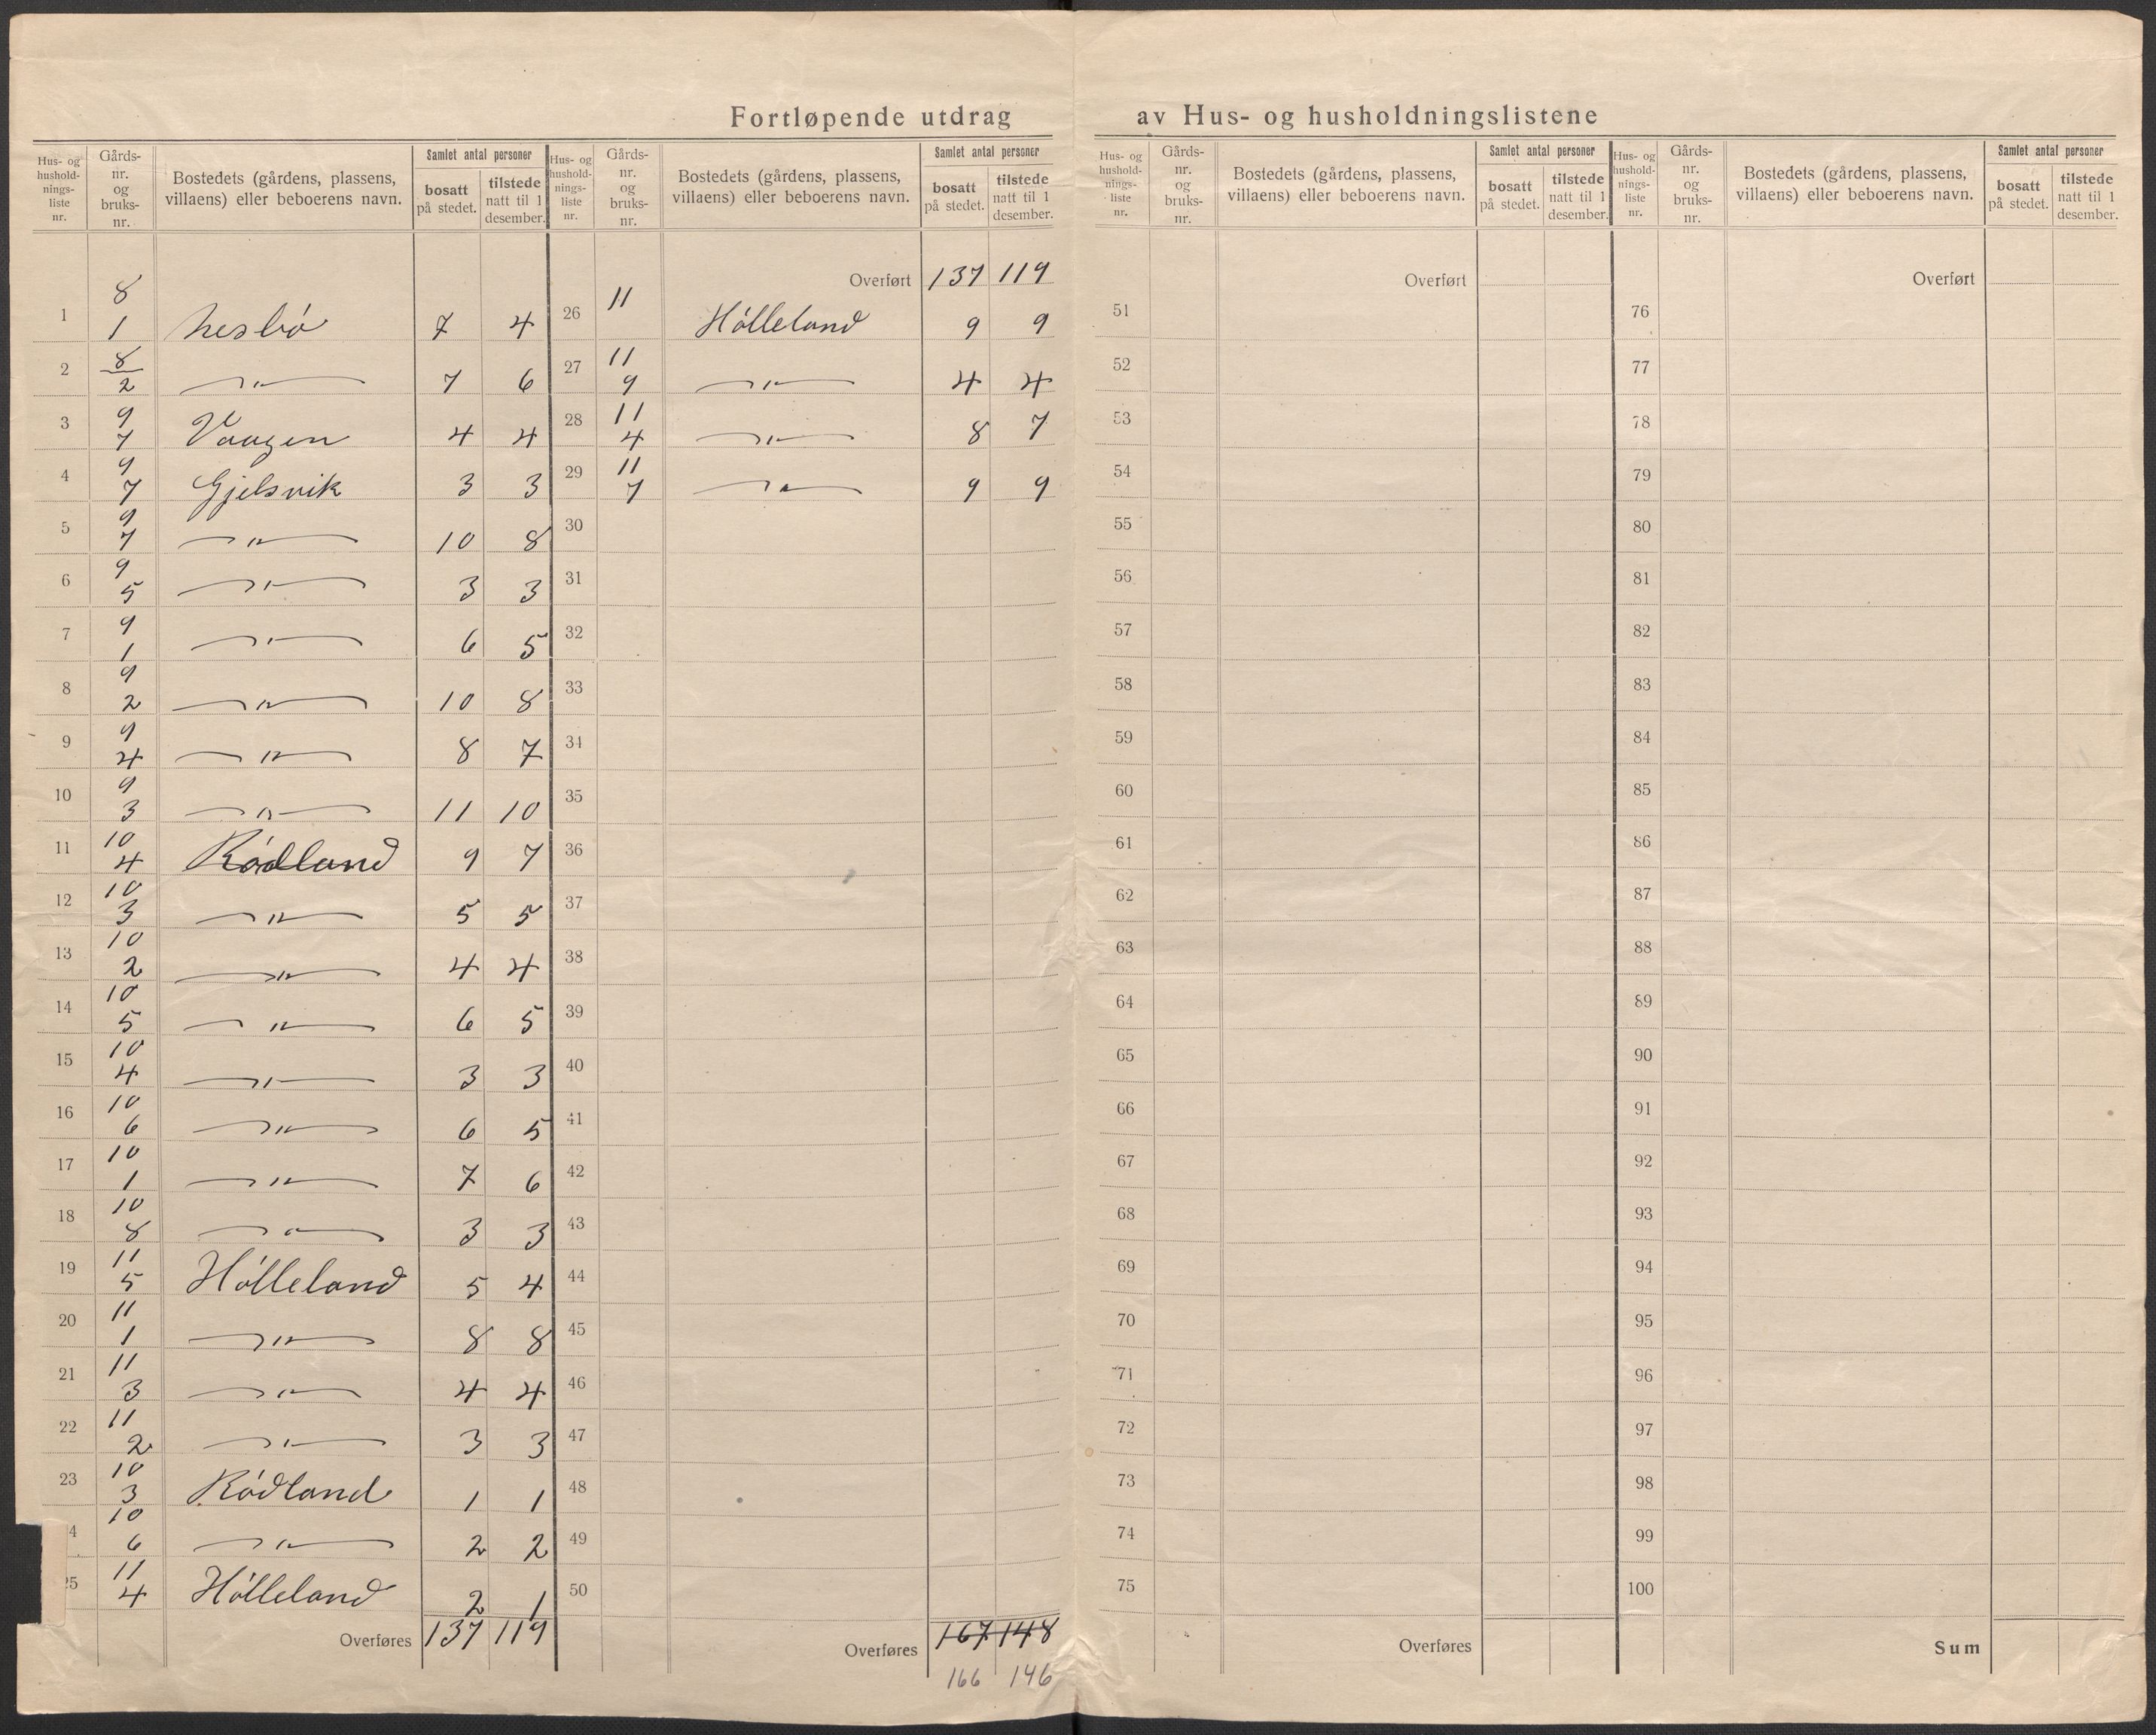 Fortløpende utdrag av Hus- og husholdningslistene
Hus- og hushold-nings-liste nr. | Gårds-nr. og bruks-nr. | Bostedets (gårdens, plassens, villaens) eller beboerens navn. | Samlet antal personer | bosatt på stedet. | tilstede natt til 1 desember.
1 8 1 Nesbö 7 4
2 8 2 —"— 7 6
3 9 7 Vaagen 4 4
4 9 7 Gjelsvik 3 3
5 9 7 —"— 10 8
6 9 5 —"— 3 3
7 9 1 —"— 6 5
8 9 2 —"— 10 8
9 9 4 —"— 8 7
10 9 3 —"— 11 10
11 10 4 Rödland 9 7
12 10 3 —"— 5 5
13 10 2 —"— 4 4
14 10 5 —"— 6 5
15 10 4 —"— 3 3
16 10 6 —"— 6 5
17 10 1 —"— 7 6
18 10 8 —"— 3 3
19 11 5 Hölleland 5 4
20 11 1 —"— 8 8
21 11 3 —"— 4 4
22 11 2 —"— 3 3
23 10 3 Rödland 1 1
4 10 6 —"— 2 2
25 11 4 Hölleland 2 1
Overføres 137 119
Hus- og hushold-nings-liste nr. | Gårds-nr. og bruks-nr. | Bostedets (gårdens, plassens, villaens) eller beboerens navn. | Samlet antal personer | bosatt på stedet. | tilstede natt til 1 desember.
Overført 137 119
26 11 Hölleland 9 9
27 11 9 —"— 4 4
28 11 4 —"— 8 7
29 11 7 —"— 9 9
30
31
32
33
34
35
36
37
38
39
40
41
42
43
44
45
46
47
48
49
50
Overføres 167 148
166 146
Hus- og hushold-nings-liste nr. | Gårds-nr. og bruks-nr. | Bostedets (gårdens, plassens, villaens) eller beboerens navn. | Samlet antal personer | bosatt på stedet. | tilstede natt til 1 desember.
Overført
51
52
53
54
55
56
57
58
59
60
61
62
63
64
65
66
67
68
69
70
71
72
73
74
75
Overføres
Hus- og hushold-nings-liste nr. | Gårds-nr. og bruks-nr. | Bostedets (gårdens, plassens, villaens) eller beboerens navn. | Samlet antal personer | bosatt på stedet. | tilstede natt til 1 desember.
Overført
76
77
78
79
80
81
82
83
84
85
86
87
88
89
90
91
92
93
94
95
96
97
98
99
100
Sum